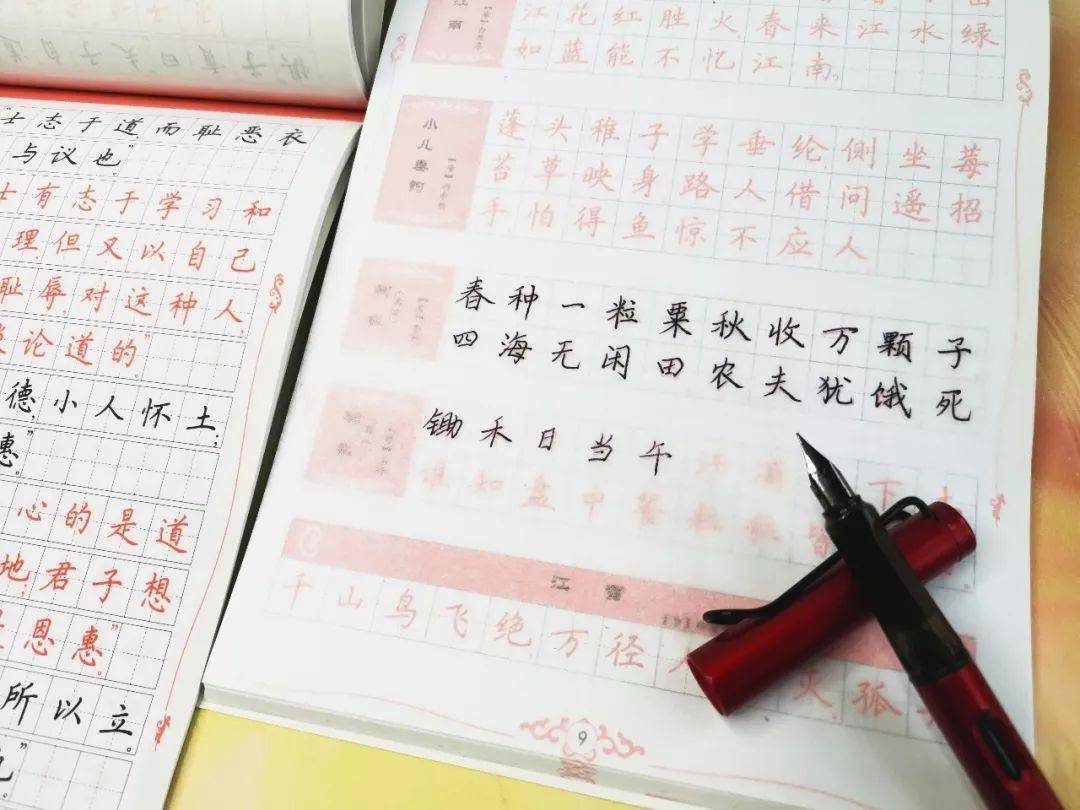 士志于道而耻恶衣
与议也”
士有志于学习和
理,但又以自己
耻辱,对这种人,
论道的”
德,小人怀土;
惠”
心的是道
地;君子想
恩惠”
所以立。
江花红胜火春来江水绿
如蓝能不忆江南。
小儿垂钓
蓬头稚子学垂纶,侧坐莓
苔草映身路人借问遥招
手怕得鱼惊不应人
春种一粒粟秋收万颗子
四海无闲田农夫犹饿死
锄禾日当午
谁知盘中餐
江雪
千山鸟飞绝万径
孤
9